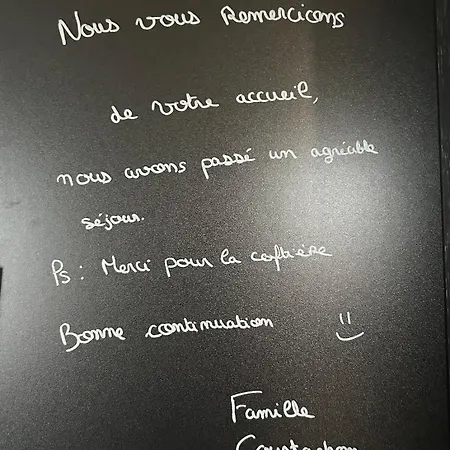 Nous vous Remercions
de votre accueil,
nous avons passé un agréable
séjour.
Ps : Merci pour la caftière
Bonne continuation
Famille